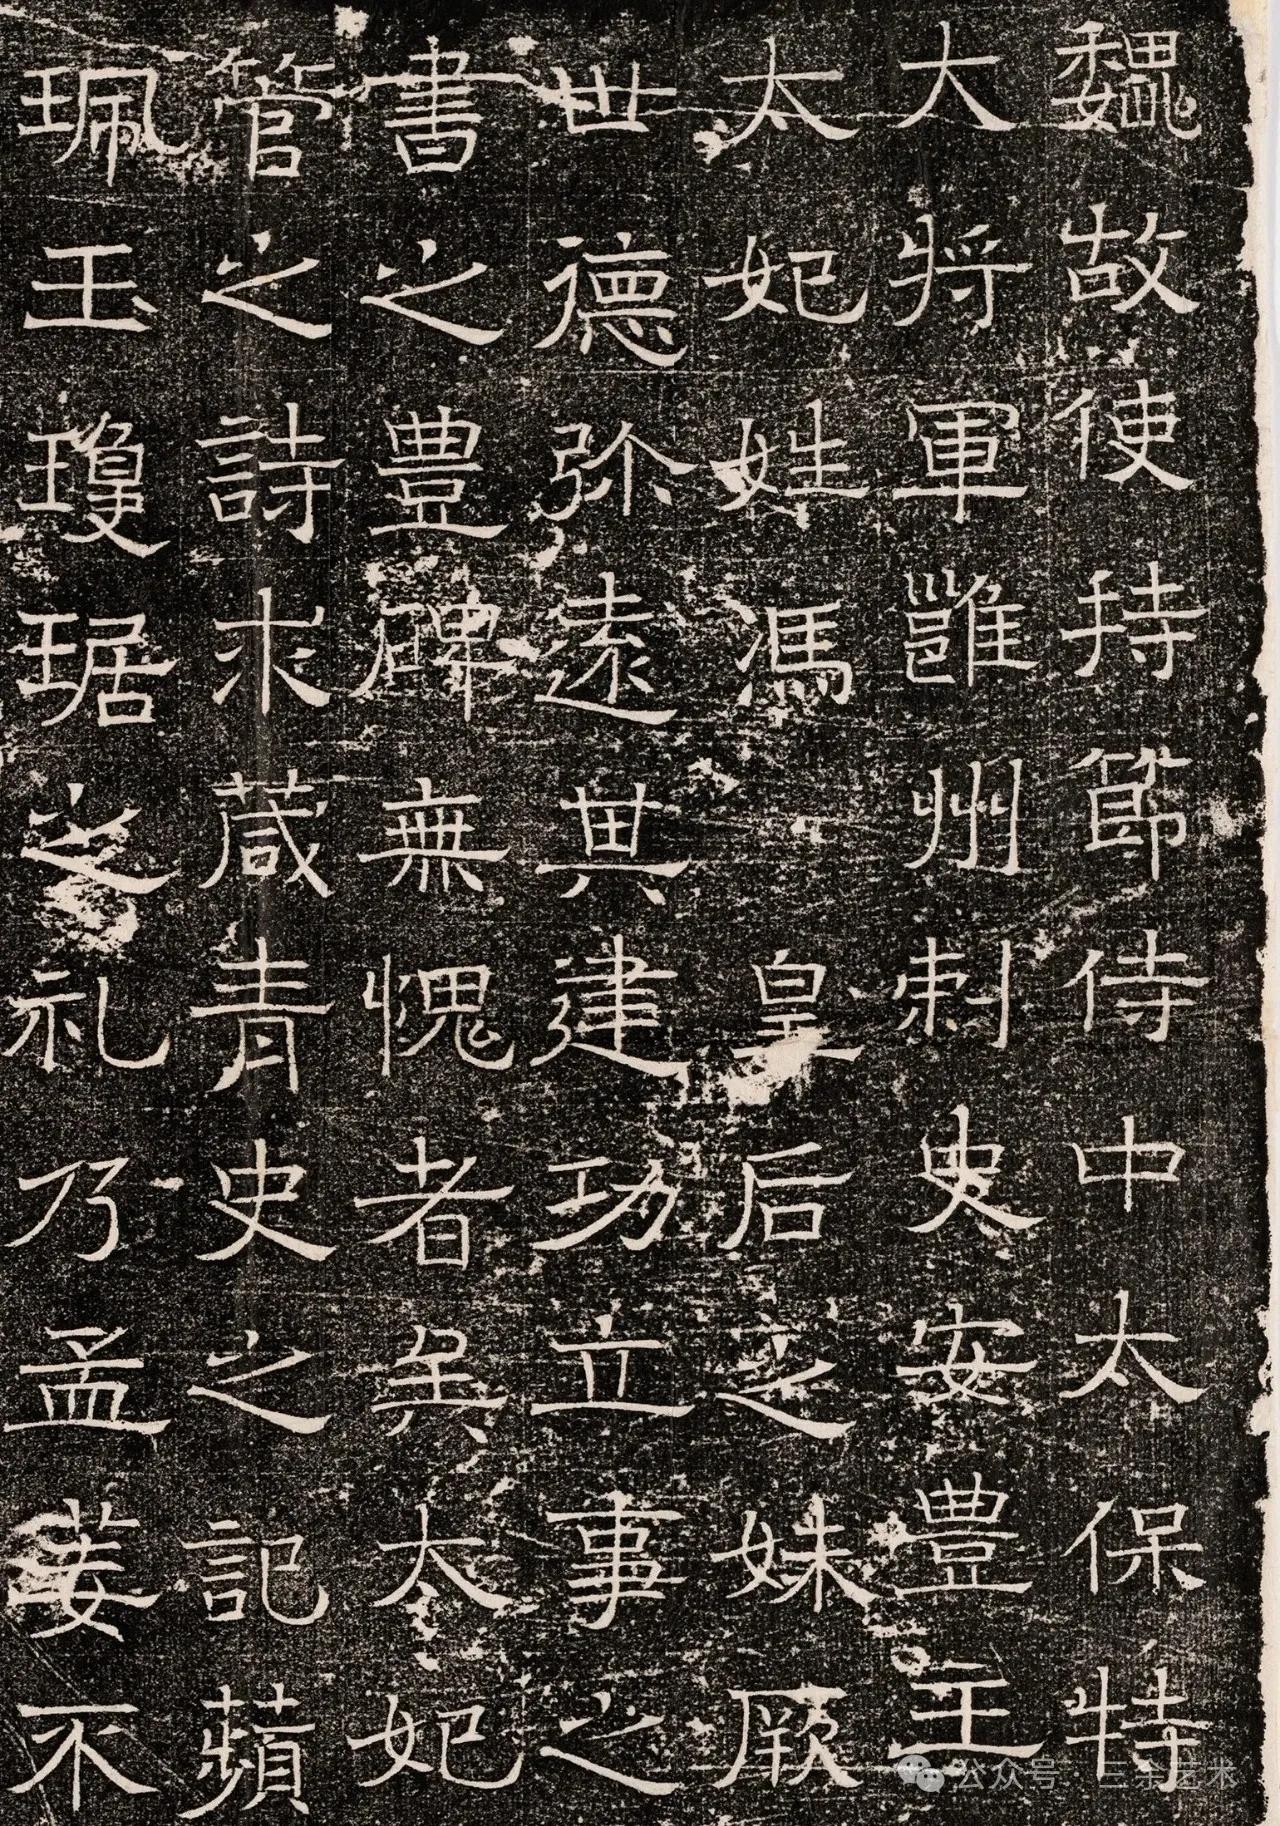 魏故使持節侍中太保特
大將軍雝州刺史安豊王
太妃姓馮 皇后之妹厥
世德弥遠其建功立事之
書之豊碑無愧者矣太妃
管之詩求葴青史之記蘋
珮玉瓊琚之礼乃孟姜不
公众号 三余艺术